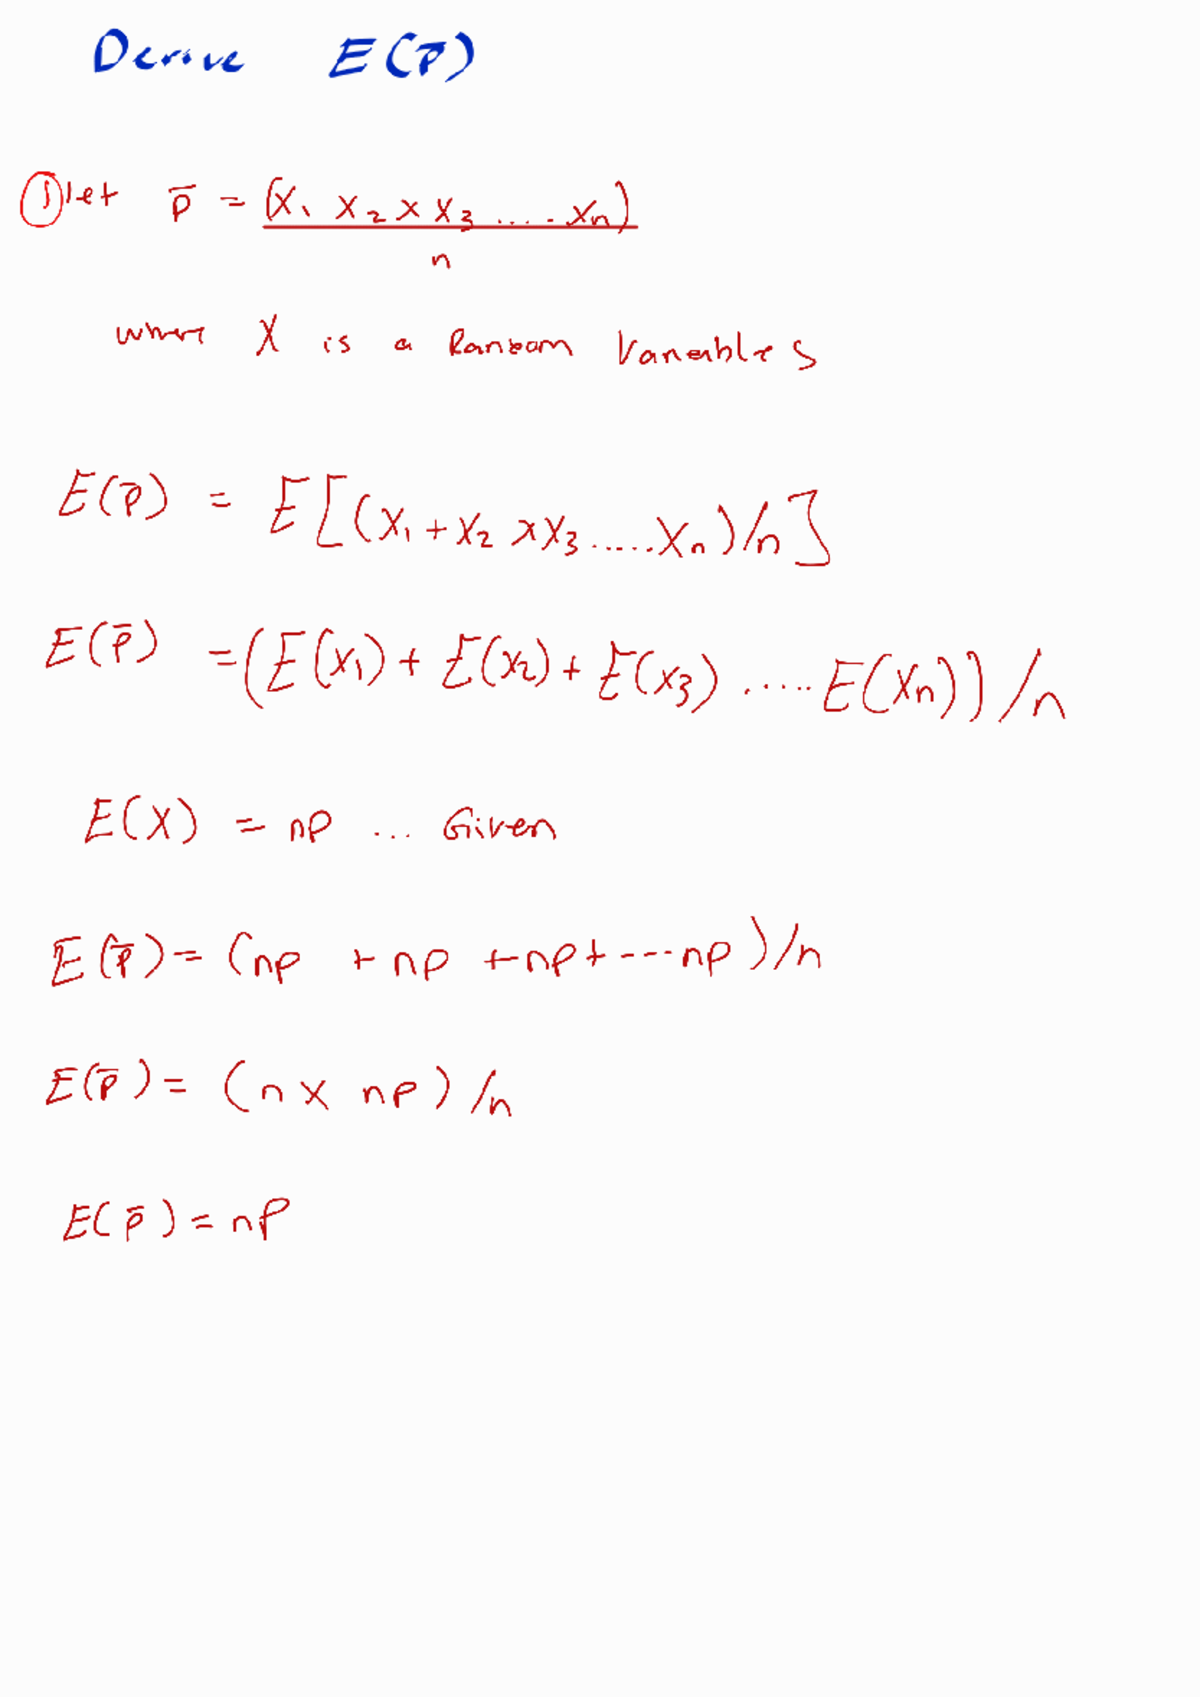 Derive E(p̅)
① let p̅ = (X₁ X₂ x X₃ ..... Xn)
n
where X is a Random Variables
E(p̅) = E[(X₁ + X₂ x X₃ ...... Xn)/n]
E(p̅) = (E(X₁) + E(X₂) + E(X₃) ..... E(Xn))/n
E(X) = np ... Given
E(p̅) = (np + np + np + --- np)/n
E(p̅) = (n x np)/n
E(p̅) = np